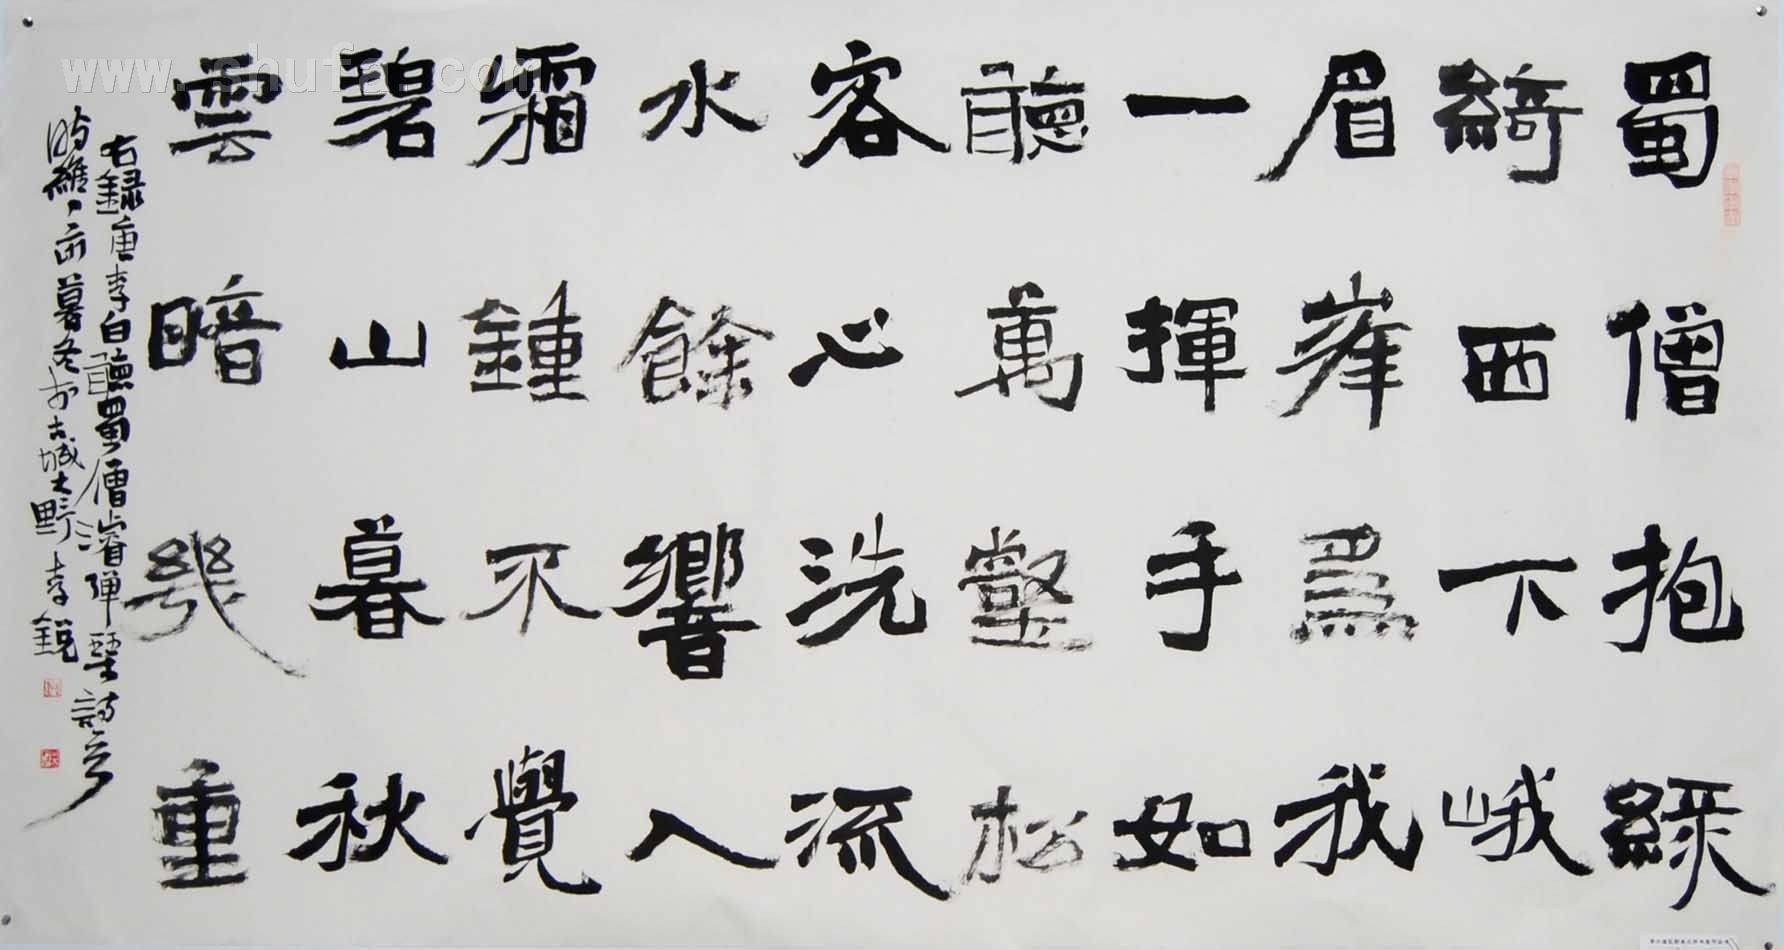 www.shufa.com
蜀僧抱綠
綺西下峨
眉峯爲我
一揮手如
聽萬壑松
客心洗流
水餘響入
霜鍾不覺
碧山暮秋
雲暗幾重
右錄唐李白聽蜀僧濬彈琴詩
時維暮冬於古城大野李銳